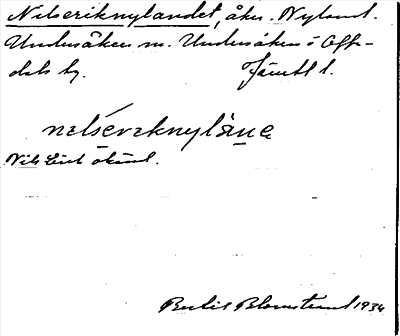 Nilseriknylandet, åker. Nyland.
Undersåker sn. Undersåkers o Offer-
dals tg. Jämtl l.
nɛlsérɛknylänɛ
Nils Erik okänd.
Bertil Blomstrand 1934